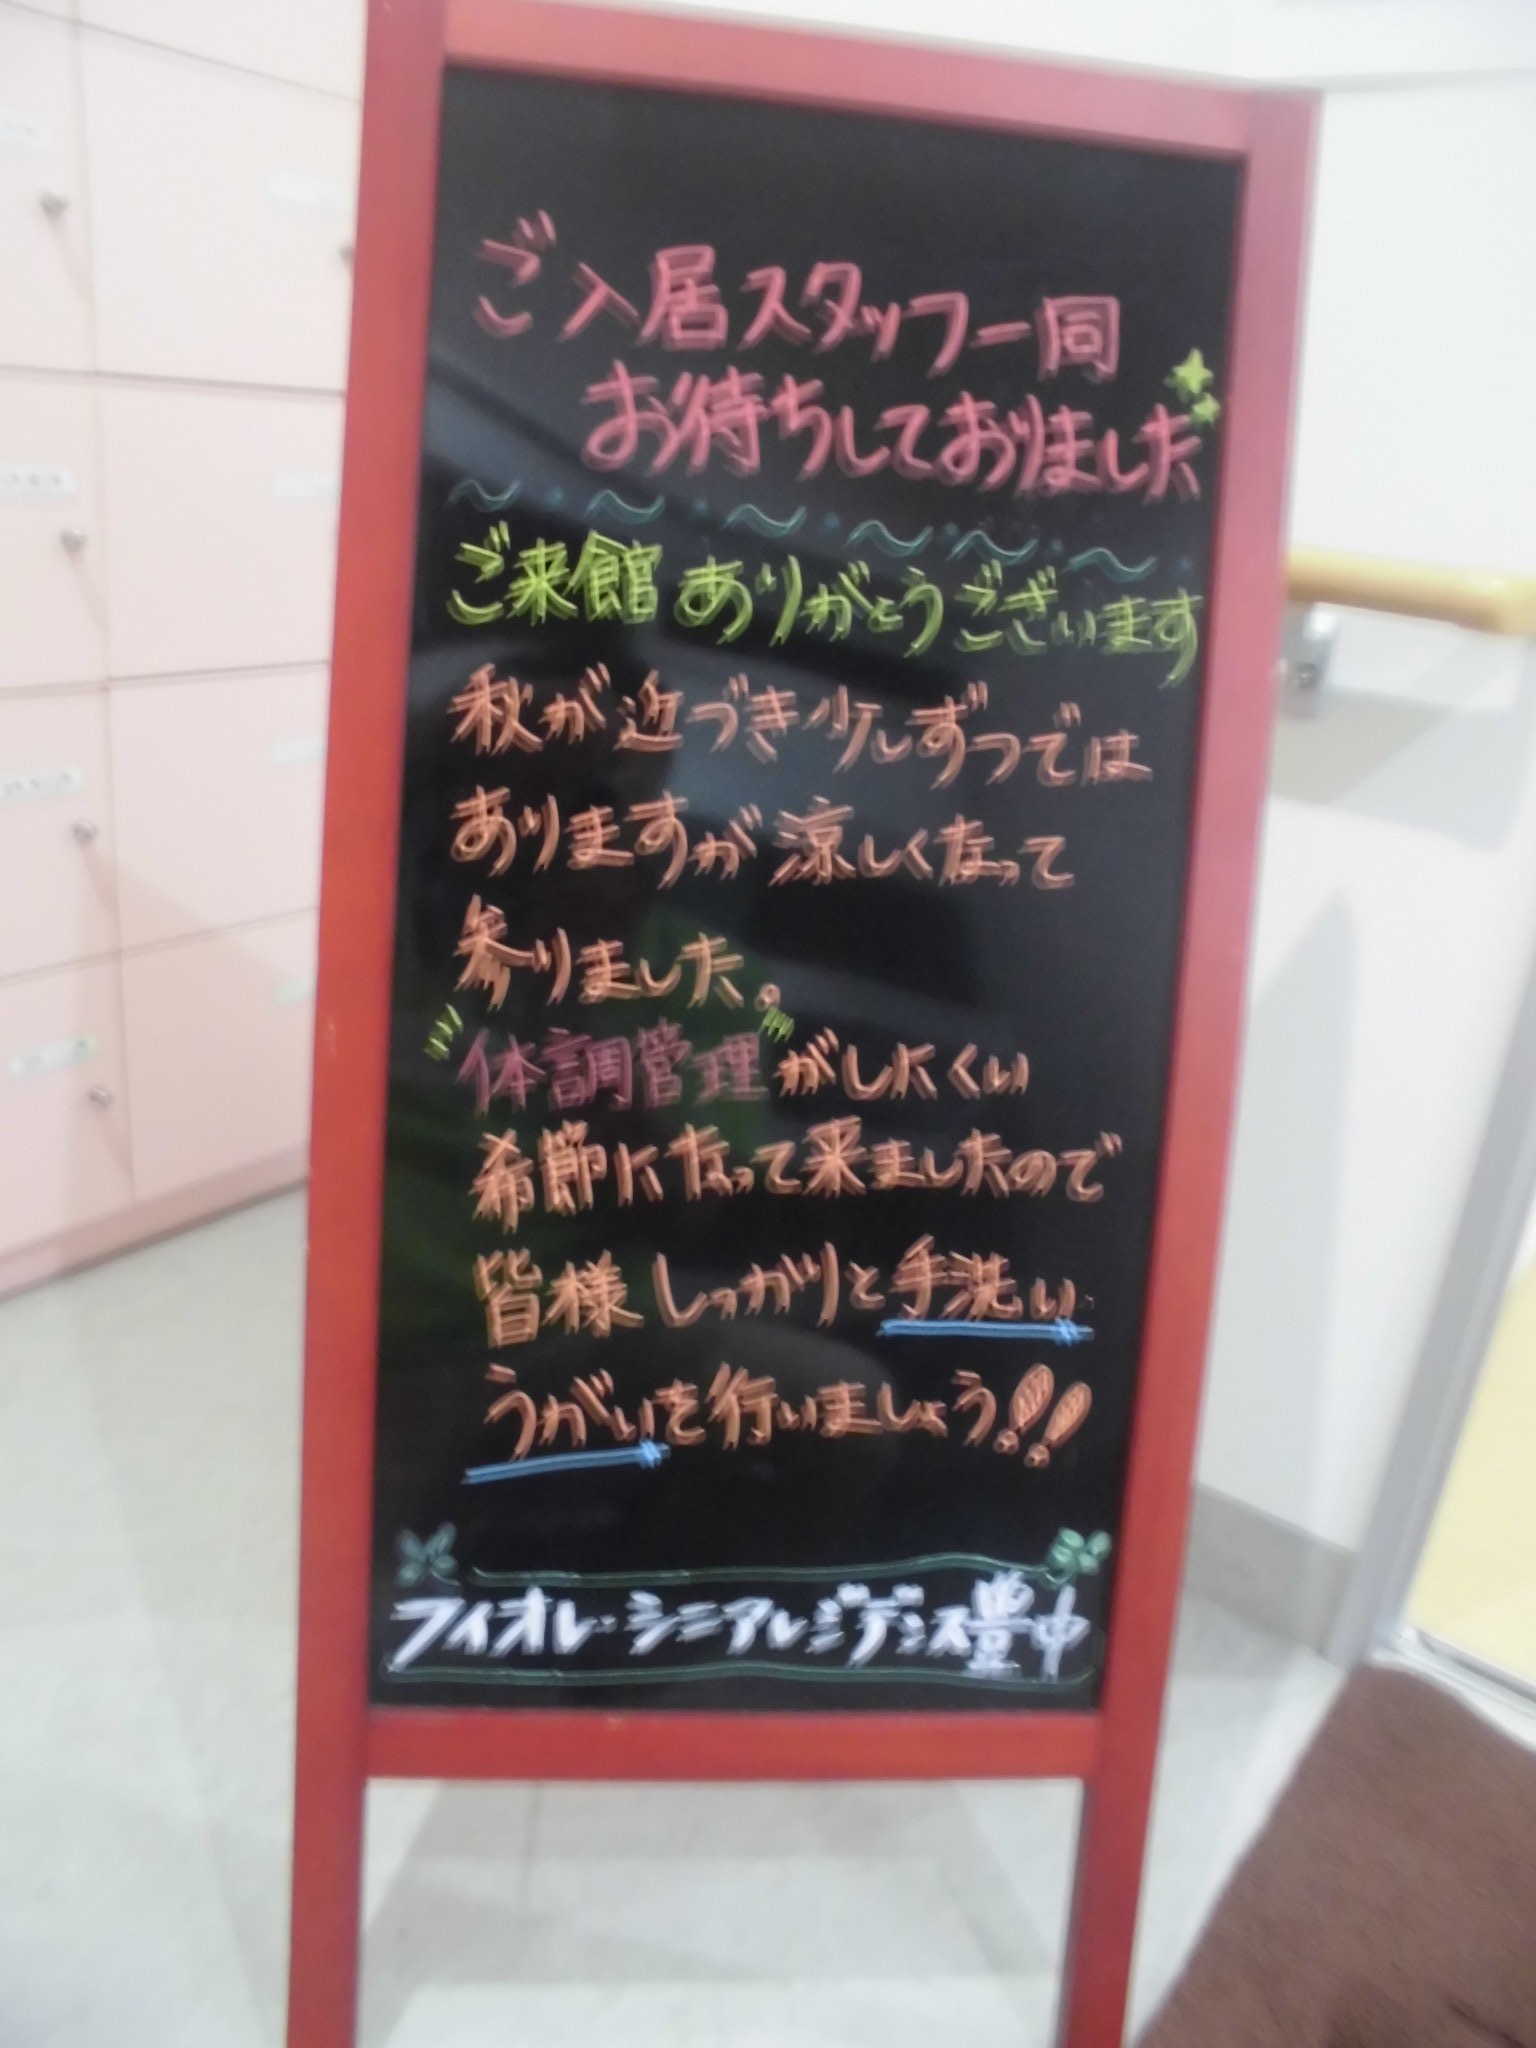 ご入居スタッフ一同
お待ちしておりました
ご来館ありがとうございます
秋が近づき少しずつでは
ありますが涼しくなって
参りました。
"体調管理"がしにくい
希節になって来ましたので
皆様しっかりと手洗い
うがいを行いましょう!!
フィオレ・シニアレジデンス豊中